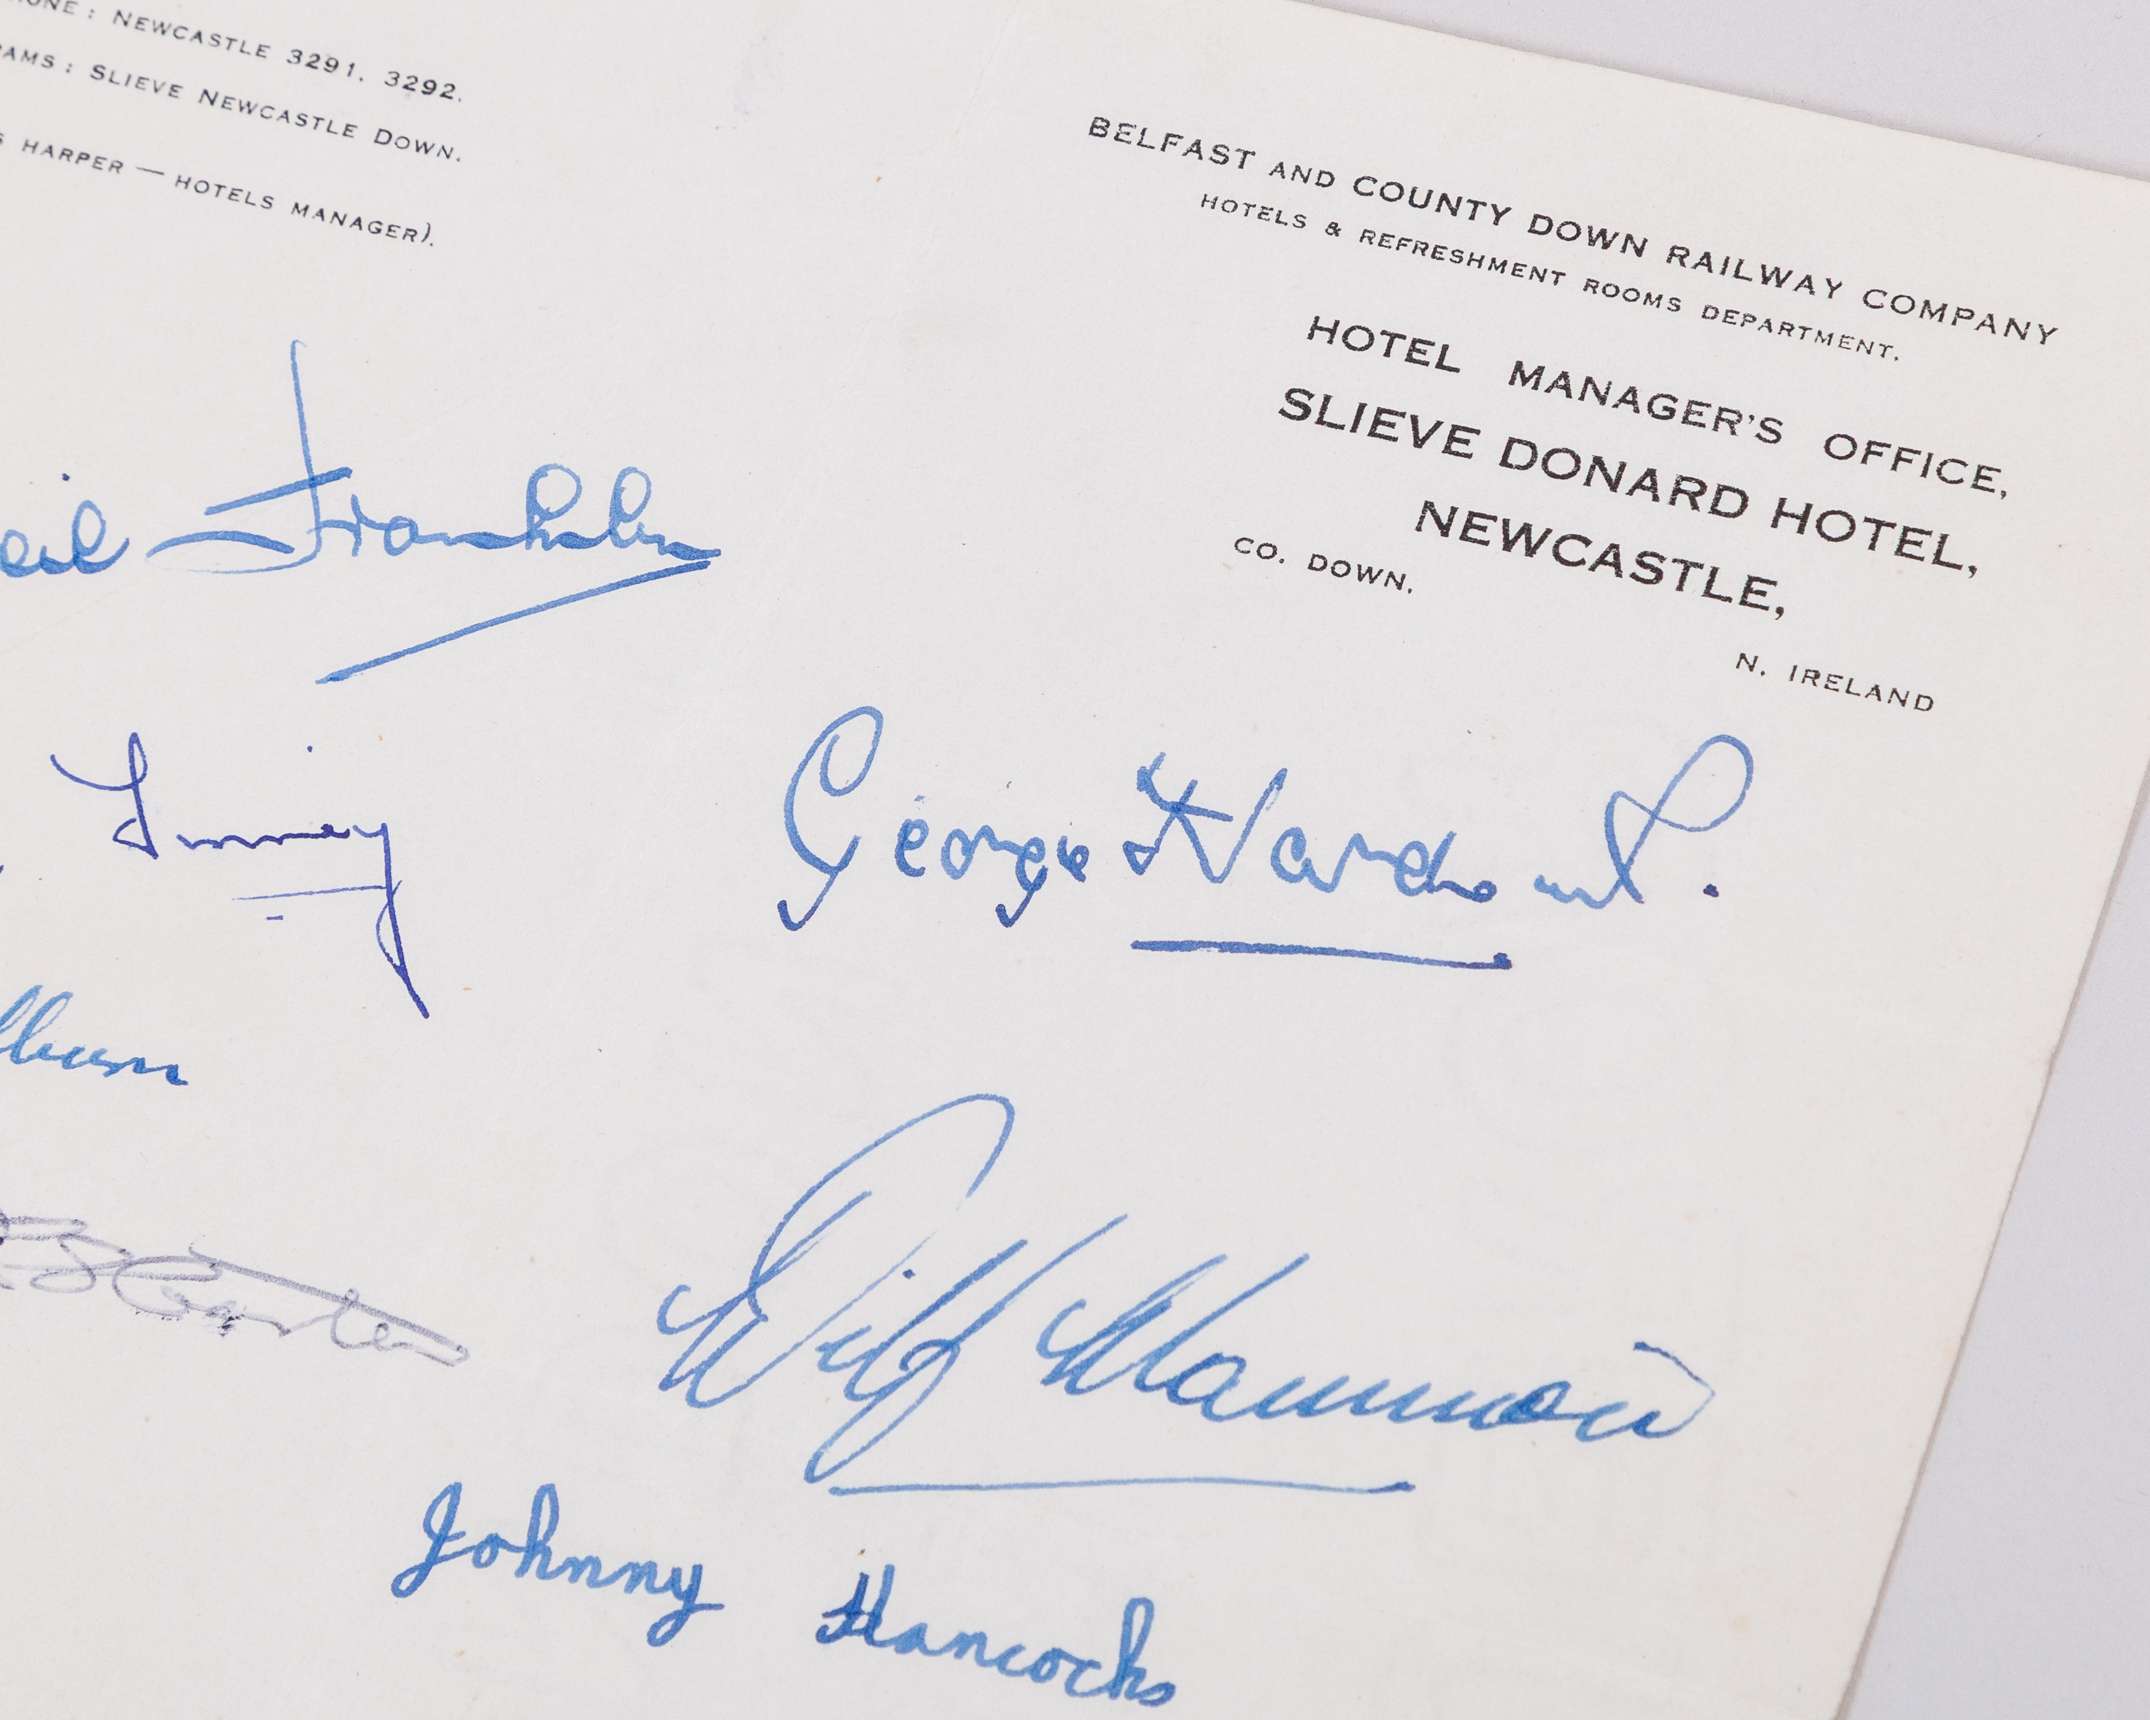 : NEWCASTLE 3291. 3292.
: SLIEVE NEWCASTLE DOWN.
HARPER — HOTELS MANAGER).
BELFAST AND COUNTY DOWN RAILWAY COMPANY
HOTELS & REFRESHMENT ROOMS DEPARTMENT.
HOTEL MANAGER'S OFFICE,
SLIEVE DONARD HOTEL,
NEWCASTLE,
CO. DOWN.
N. IRELAND
eil Franklin
Finney
George Hardwick.
Carter
Wilf Mannion
Johnny Hancocks